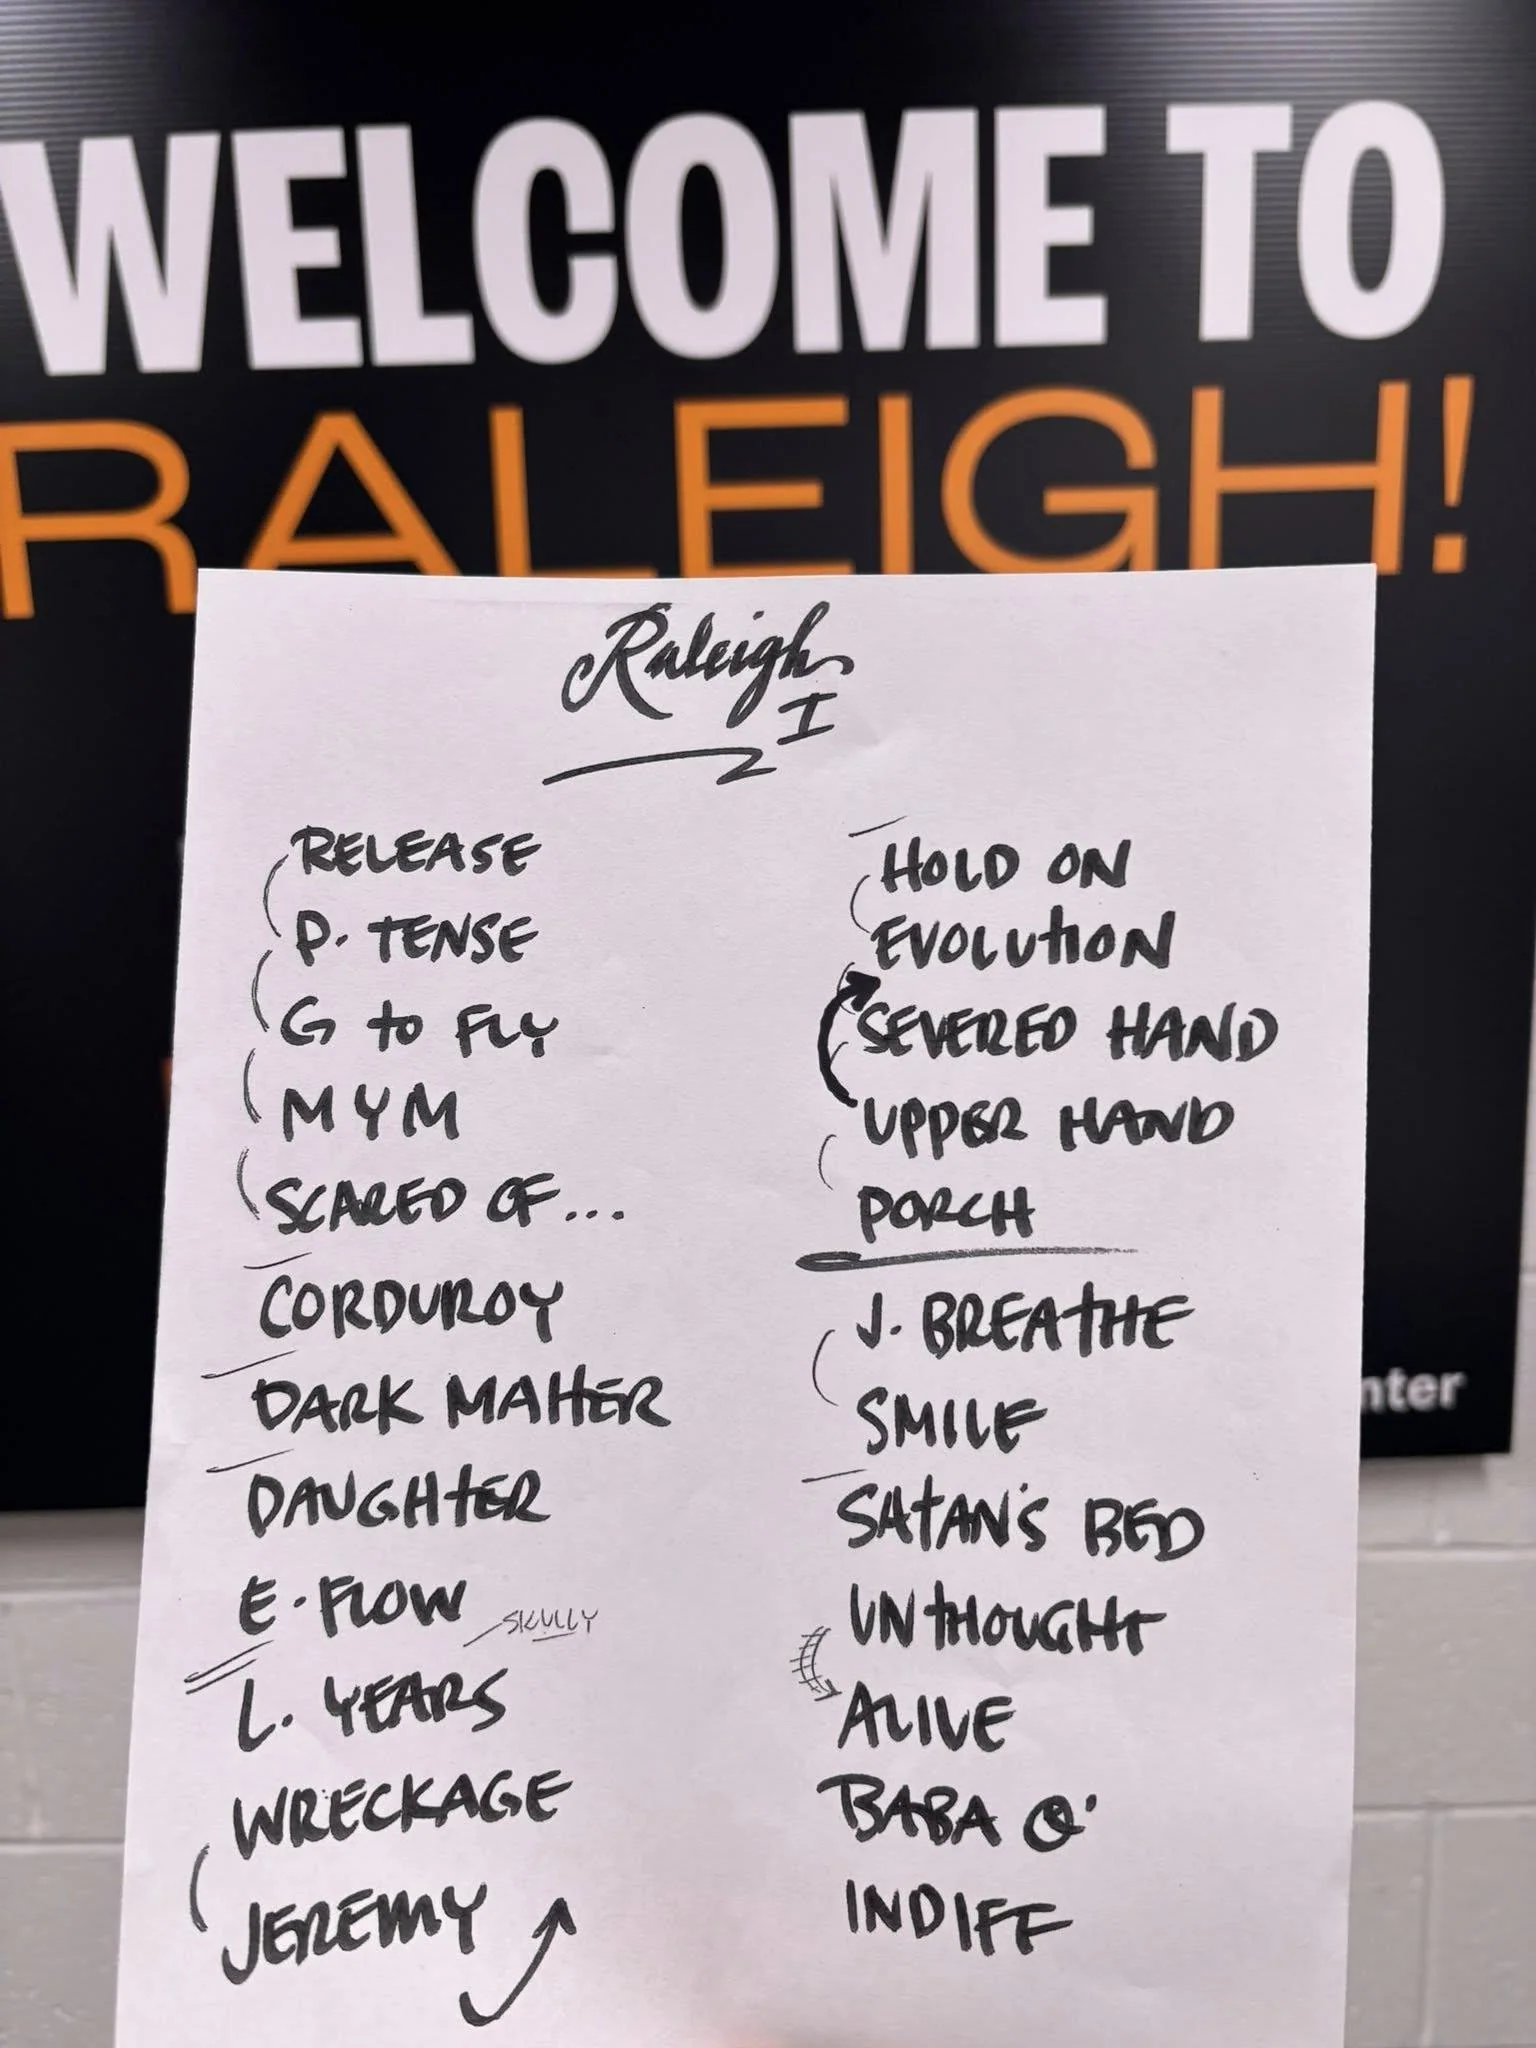 WELCOME TO
RALEIGH!
Raleigh
I
RELEASE
P. TENSE
G to FLY
MYM
SCARED OF...
CORDUROY
DARK MATTER
DAUGHTER
E. FLOW SKULLY
L. YEARS
WRECKAGE
JEREMY
HOLD ON
EVOLUTION
SEVERED HAND
UPPER HAND
PORCH
J. BREATHE
SMILE
SATAN'S BED
UNTHOUGHT
ALIVE
BABA O'
INDIFF
nter